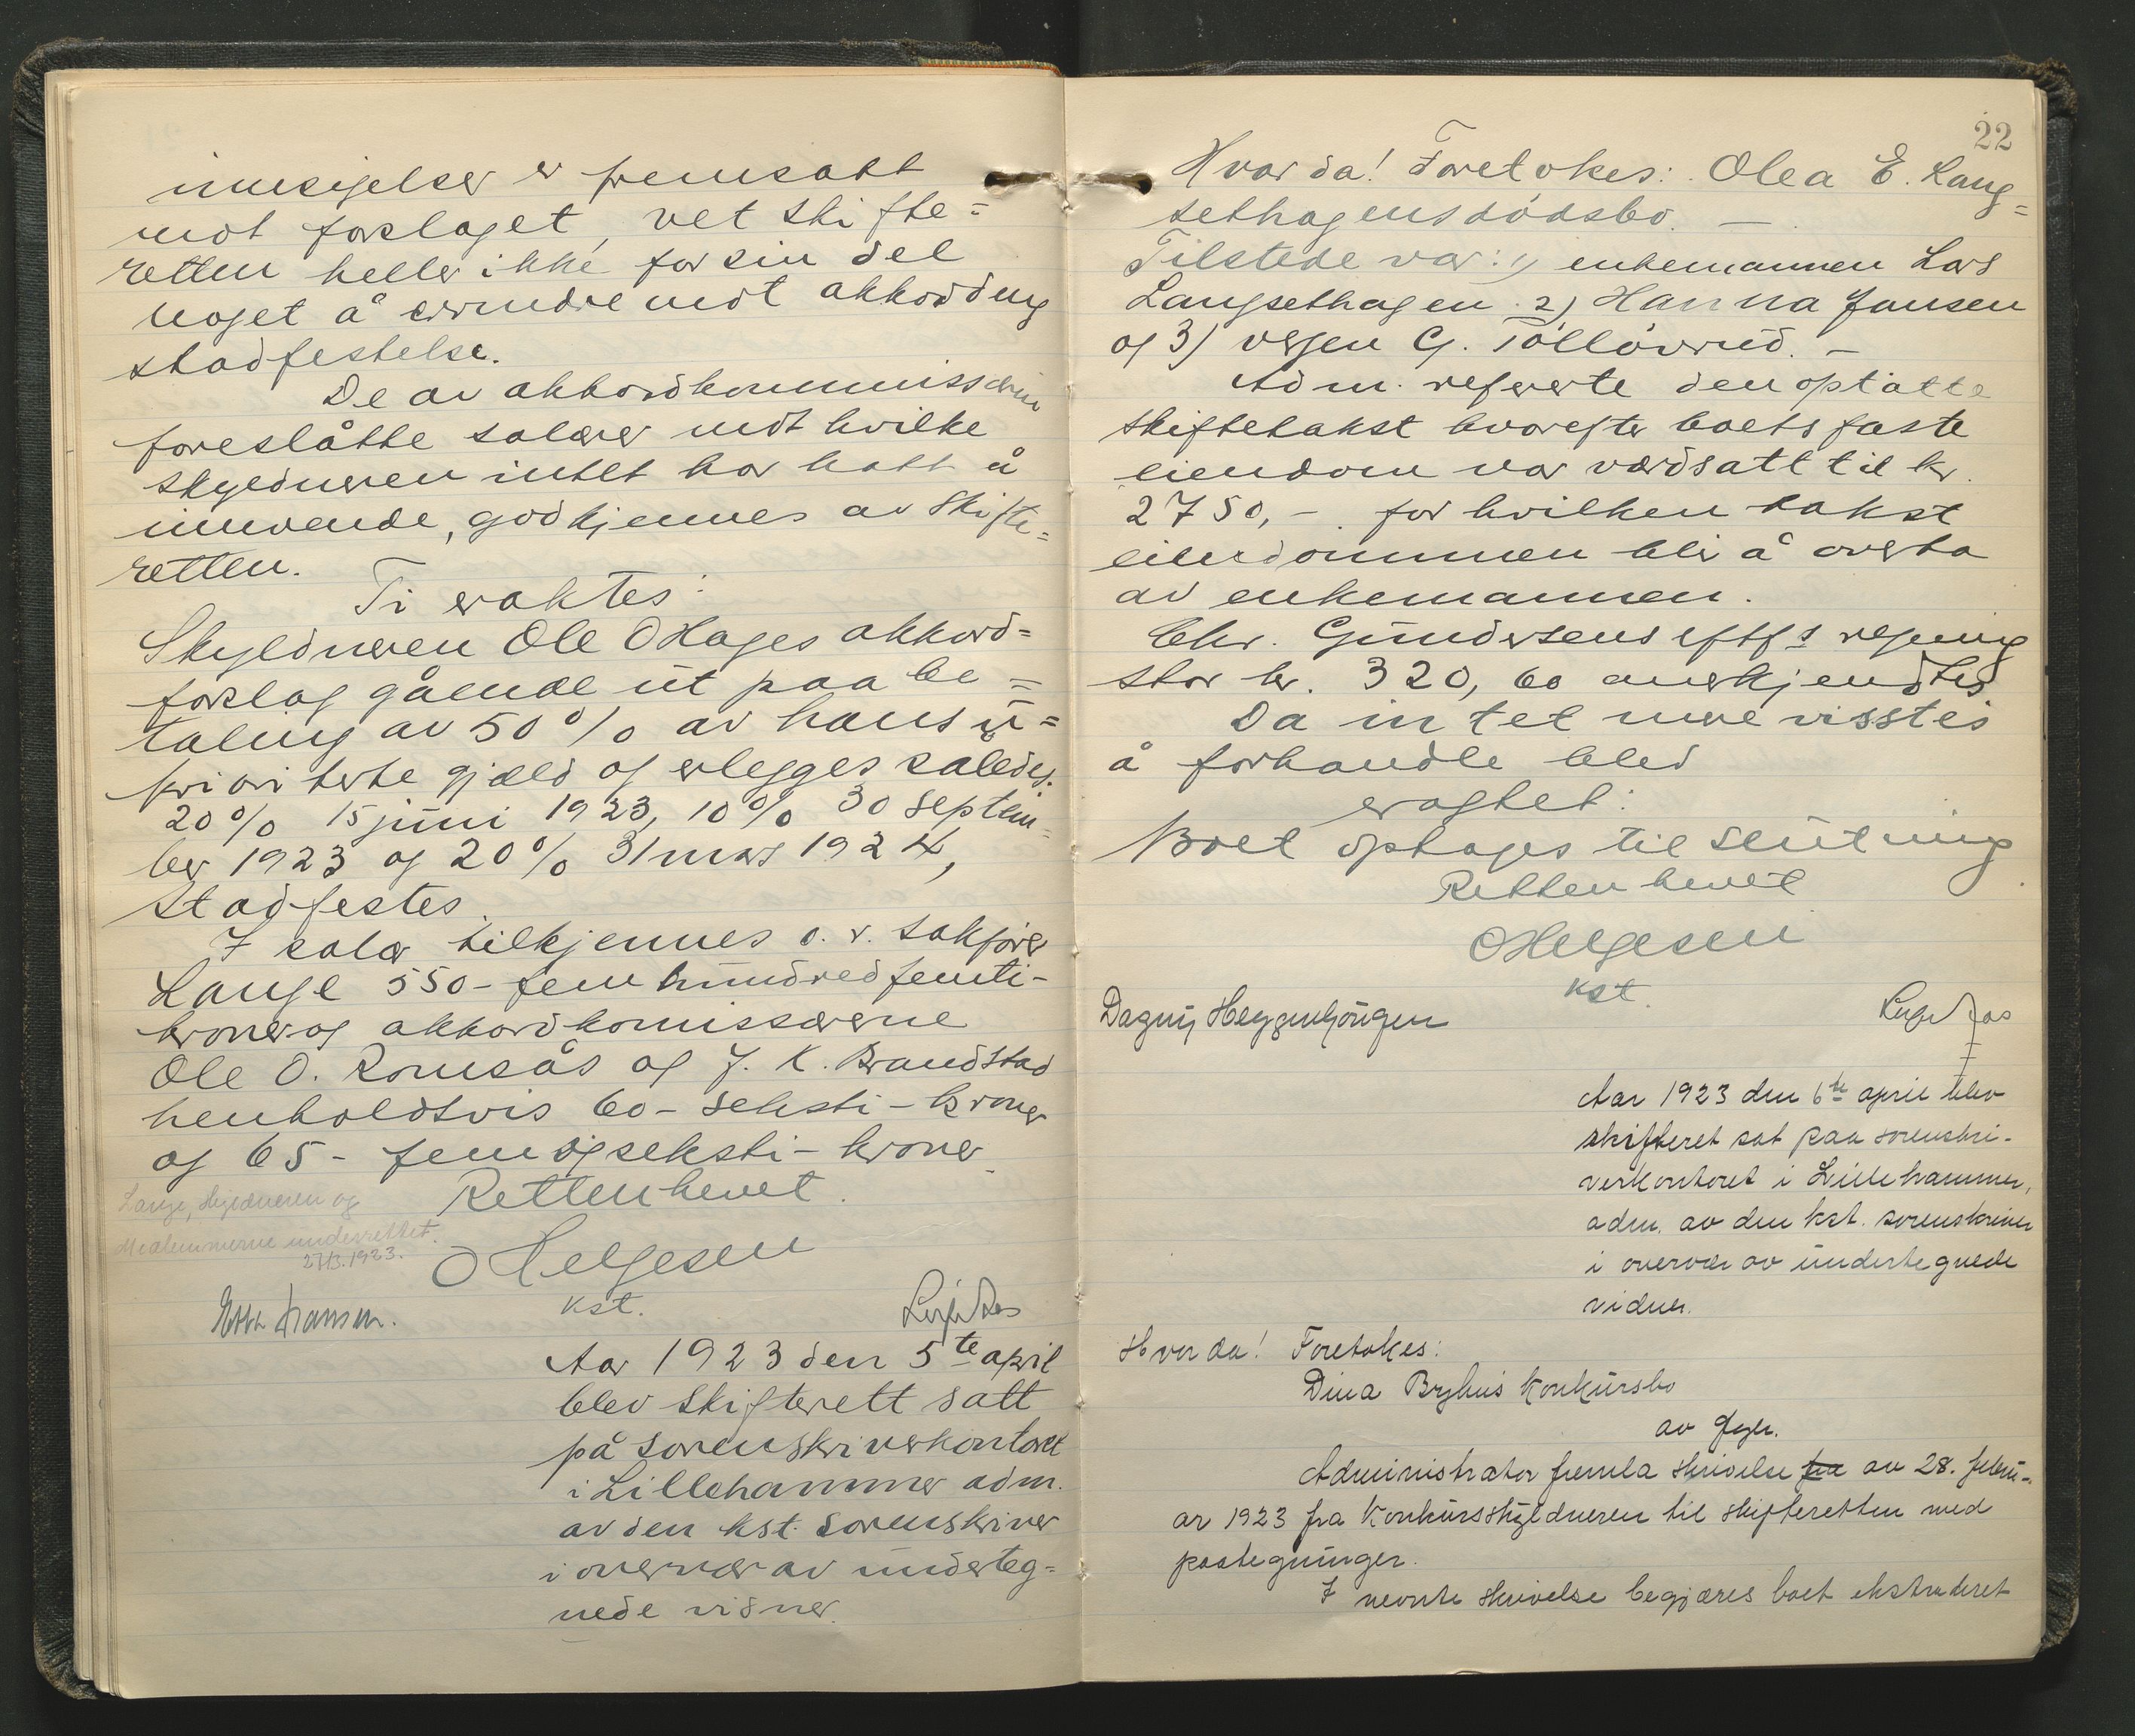 innsigelser er fremsatt
mot forslaget, vet skifte=
retten heller ikke for sin del
noget å erindre mot akkordens
stadfestelse.
De av akkordkommissærene
foreslåtte salærer mot hvilke
skyldneren intet har hatt å
innvende, godkjennes av skifte=
retten.
Ti eraktes:
Skyldneren Ole O Hages akkord=
forslag gående ut paa be=
taling av 50% av hans u=
prioriterte gjæld og erlegges således:
20% 15 juni 1923, 10% 30 septem=
ber 1923 og 20% 31 mars 1924,
stadfestes.
I salær tilkjennes o. r. sakfører
Lange 550 - fem hundred femti-
kroner og akkordkomissærene
Ole O. Romsås og J. K. Brandstad
henholdsvis 60 - seksti - kroner
og 65 - fem og seksti - kroner.
Retten hevet.
Lange, skyldneren og
medlemmerne underrettet.
27/3.1923.
O Helgesen
kst.
Hansen.
Aar 1923 den 5te april
blev skifterett satt
på sorenskriverkontoret
i Lillehammer adm.
av den kst. sorenskriver
i overvær av underteg=
nede vidner.
22
Hvorda! Foretokes: Olea E. Lang=
sethagens dødsbo. —
Tilstede var: 1) enkemannen Lars
Langsethagen 2) Hanna Jansen
og 3) vergen G. Tollövrud. —
Adm. refererte den optatte
skiftetakst hvorefter boets faste
eiendom var værdsatt til kr.
2750,- for hvilken takst
eiendommen blir å overta
av enkemannen.
Chr. Gundersens eftf.s regning
stor kr. 320,60 anerkjendtes
Da intet mere visstes
å forhandle blev
eragtet:
Boet optages til slutning
Retten hevet.
O Helgesen
kst.
Dagny Heggenhougen
Aar 1923 den 6te april blev
skifteret sat paa sorenskri-
verkontoret i Lillehammer,
adm. av den kst. sorenskriver
i overvær av undertegnede
vidner.
Hvorda! Foretokes:
Dina Bryhns konkursbo
av
Administrator fremla skrivelse fra av 28. febru-
ar 1923 fra konkursskyldneren til skifteretten med
paategninger.
I nevnte skrivelse begjæres boet ekstraderet